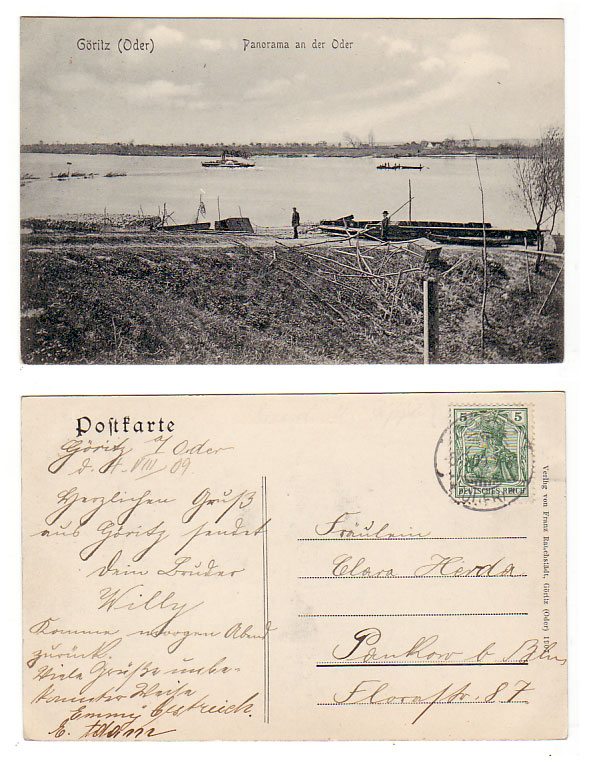 Göritz (Oder)
Panorama an der Oder
Postkarte
Göritz a/Oder
d. VIII 09
Herzlichen Gruß
aus Göritz sendet
Dein Bruder
Willy
Komme morgen Abend
zurück.
Viele Grüße unbe-
kannter Weise
Emmy Estreich.
E. Adam
5 5
DEUTSCHES REICH
Fräulein
Clara Hörda
Pankow b. Bln
Florastr. 87
Verlag von Franz Göritz (Oder)